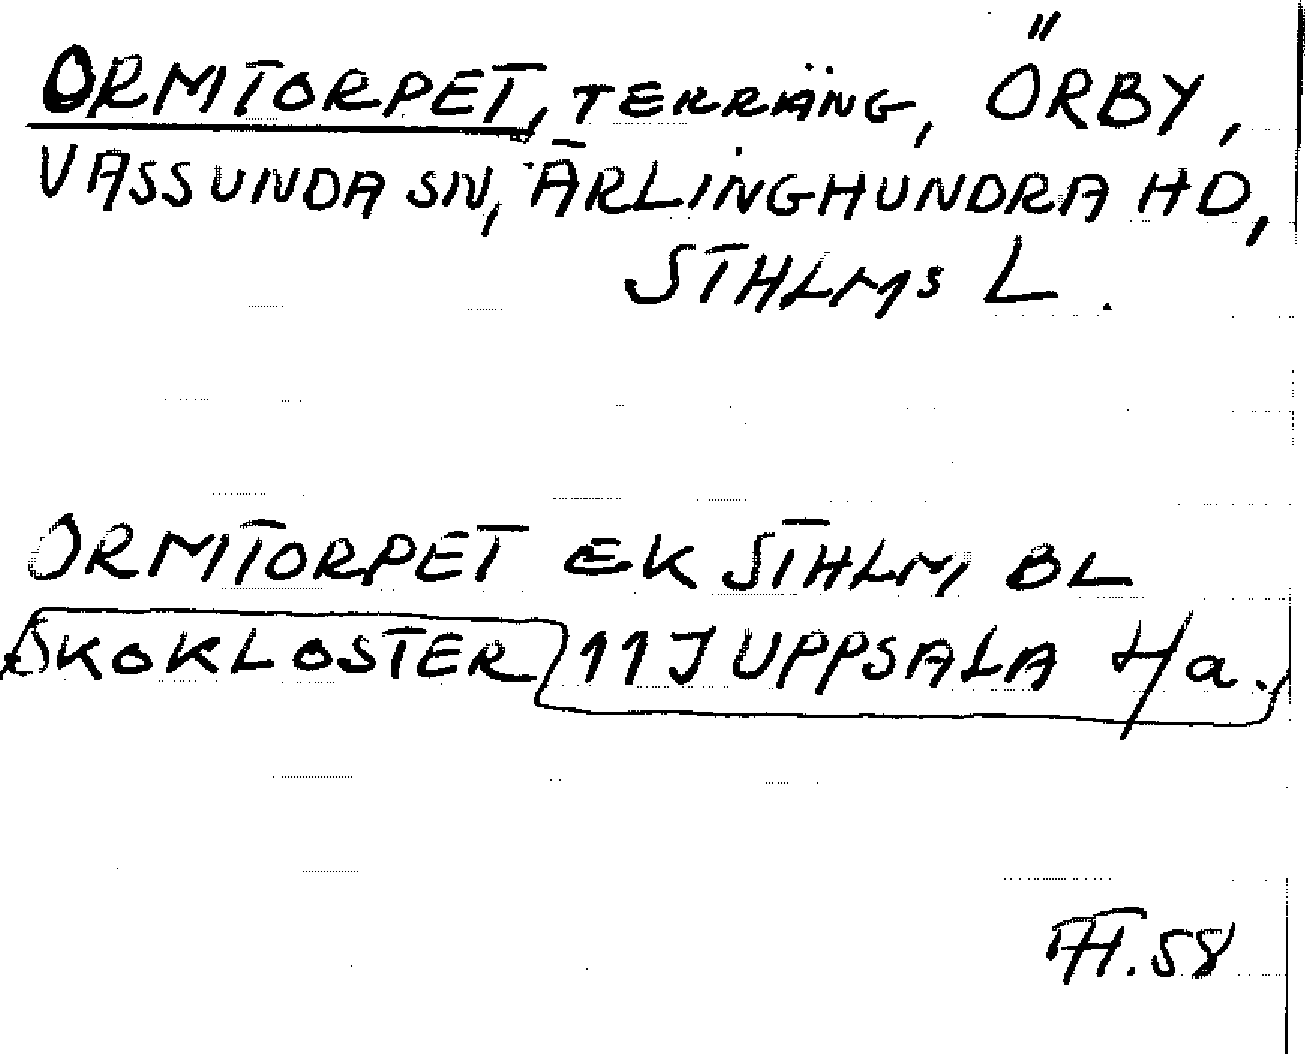 ORMTORPET, TERRÄNG, ÖRBY,
VASSUNDA SN, ÄRLINGHUNDRA HD,
STHLMS L.
ORMTORPET EK STHLM BL
SKOKLOSTER 11J UPPSALA Ha.
58